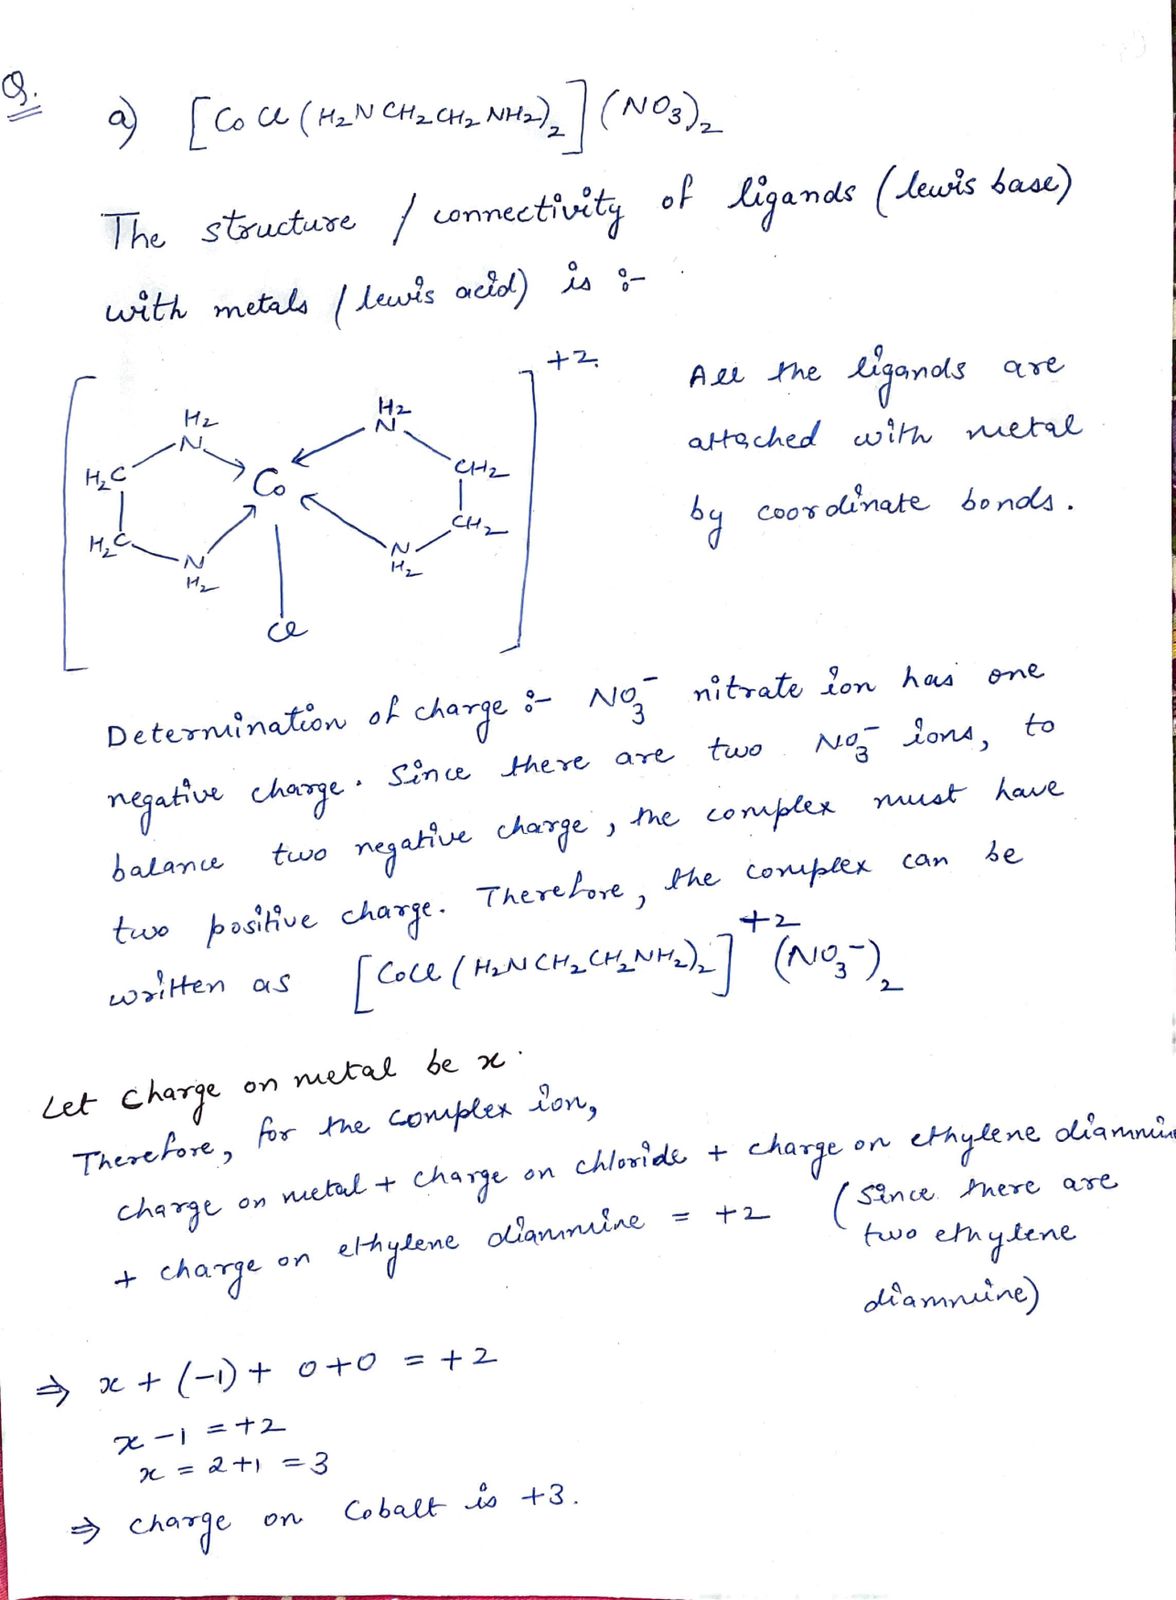 Q.
a) [CoCl(H₂NCH₂CH₂NH₂)₂](NO₃)₂
The structure / connectivity of ligands (lewis base)
with metals (lewis acid) is :-
+2.
All the ligands are
attached with metal
by coordinate bonds.
H₂ N
H₂ N
H₂C
Co
CH₂
H₂C
CH₂
N H₂
N H₂
Cl
Determination of charge :- NO₃⁻ nitrate ion has one
negative charge. Since there are two NO₃⁻ ions, to
balance two negative charge, the complex must have
two positive charge. Therefore, the complex can be
written as [CoCl(H₂NCH₂CH₂NH₂)₂]⁺² (NO₃⁻)₂
Let charge on metal be x.
Therefore, for the complex ion,
charge on metal + charge on chloride + charge on ethylene diammine
+ charge on ethylene diammine = +2 (Since there are
two ethylene
diammine)
⇒ x + (-1) + 0+0 = +2
x -1 = +2
x = 2+1 = 3
⇒ charge on Cobalt is +3.